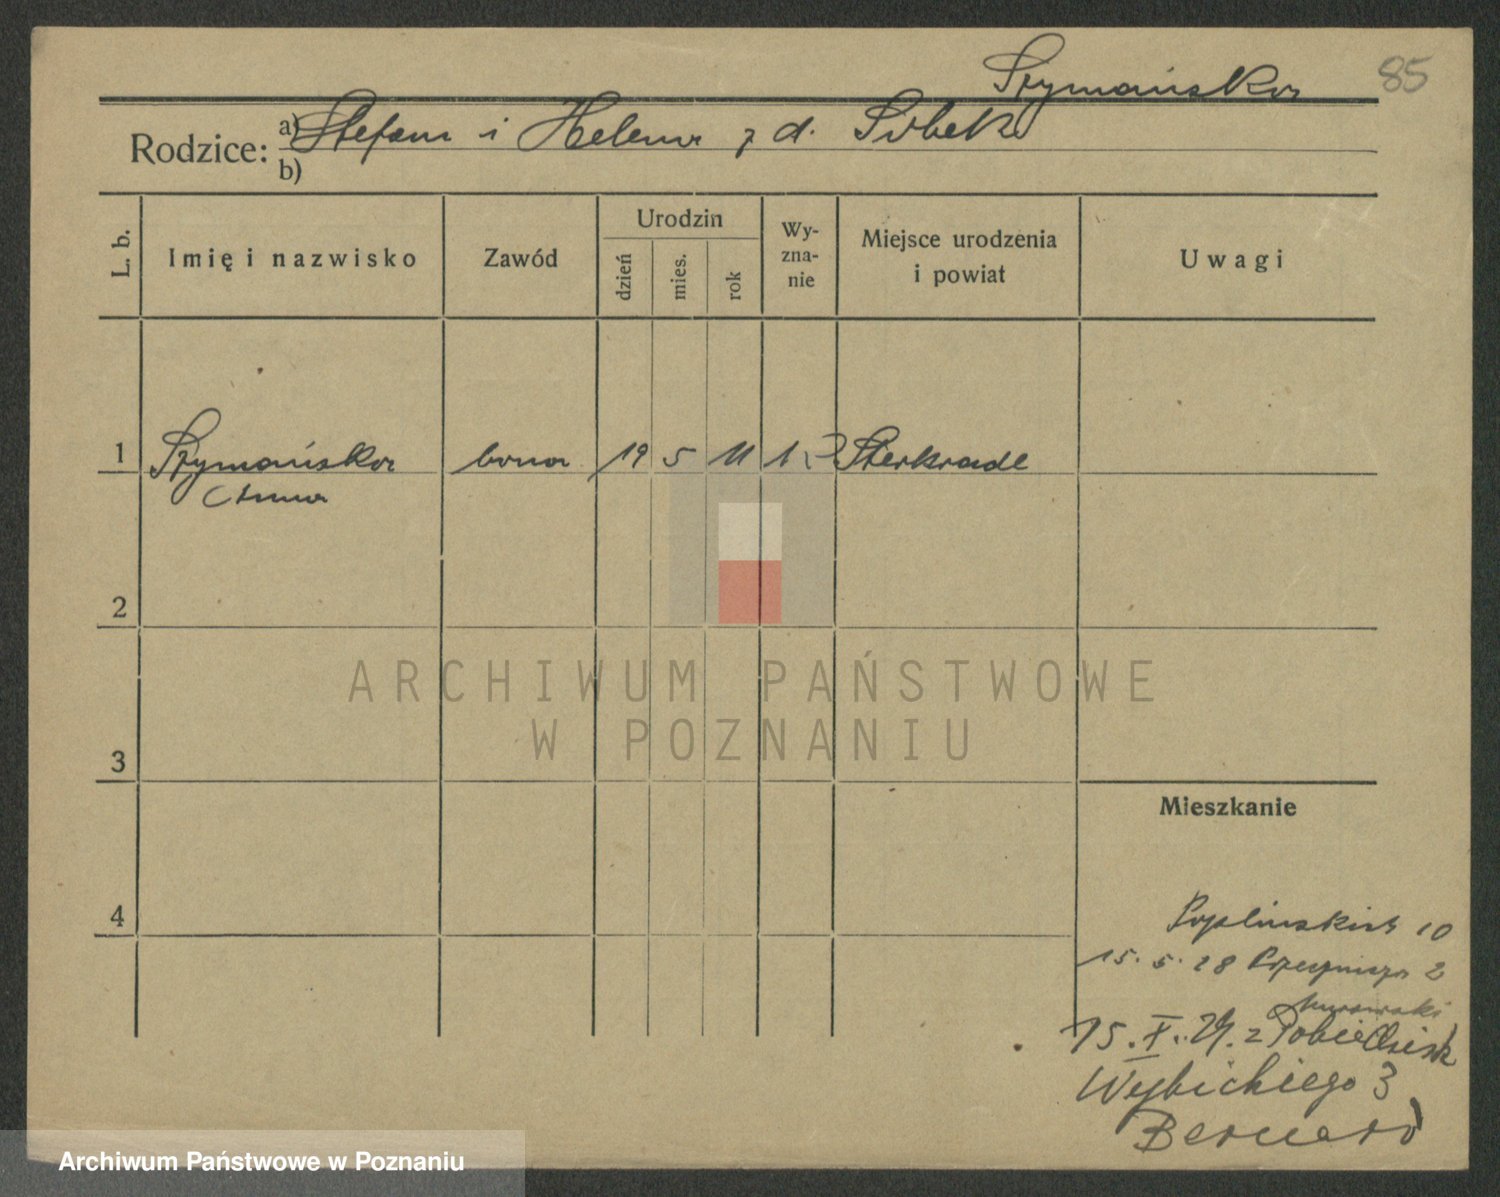 Szymańska 85
Rodzice: a) Stefan i Helena z d. Sobek
b)
L. b. Imię i nazwisko Zawód Urodzin dzień mies. rok Wy-zna-nie Miejsce urodzenia i powiat Uwagi
1 Szymańska bona 19 5 11 Sterkrade
Anna
2
ARCHIWUM PAŃSTWOWE
W POZNANIU
3
Mieszkanie
4
10
15. 5. 28 2
15. X. 29. z Pobiedzisk
Wybickiego 3
Bernard
Archiwum Państwowe w Poznaniu